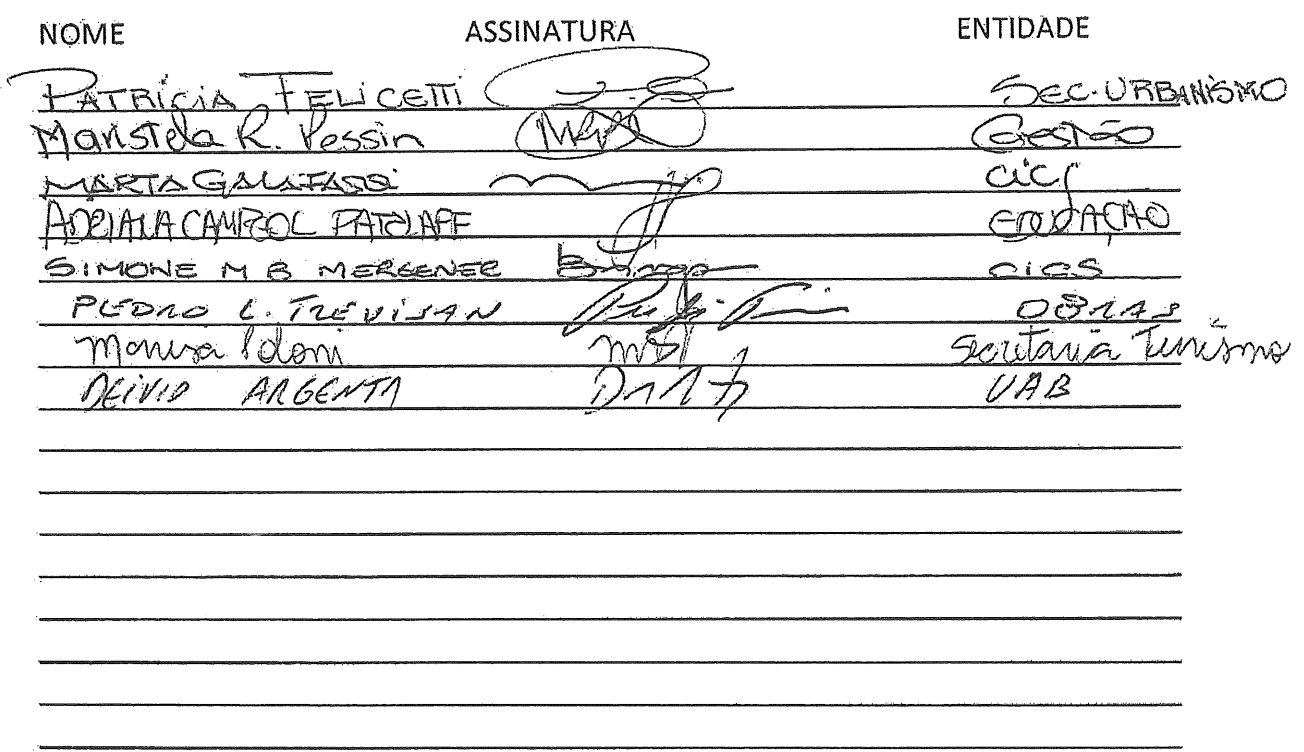 NOME ASSINATURA ENTIDADE
PATRÍCIA FELICETTI SEC. URBANISMO
Maristela R. Pessin Gestão
MARTA GALAFASSI CIC
ADRIANA PATRIARE EDUCAÇÃO
SIMONE M B MERGENER CICS
PEDRO L. TREVISAN OBRAS
Marisa Poloni Secretaria Turismo
DEIVID ARGENTA UAB